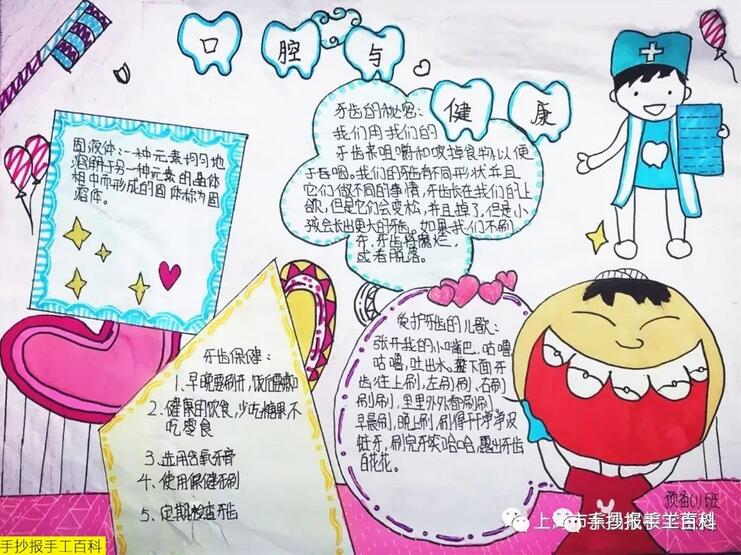 口腔与健康
固液体:一种元素均匀地
溶解于另一种元素的晶体
相中而形成的固体称为固
溶体。
牙齿的秘密:
我们用我们的
牙齿来咀嚼和咬掉食物,以便
于吞咽。我们的牙有不同形状并且
它们做不同的事情,牙齿长在我们的上
欲,但是它们会变松,并且掉了,但是小
孩会长出更大的牙齿。如果我们不刷
牙,牙齿将腐烂,
或者脱落。
牙齿保健:
1、早晚要刷牙,饭后
2、健康的饮食,少吃糖果不
吃零食
3、选用含氟牙膏
4、使用保健牙刷
5、定期检查牙齿
爱护牙齿的儿歌:
张开我的小嘴巴,咕噜
咕噜,吐出水,下面牙
齿往上刷,左刷刷,右刷
刷刷,里里外外都刷刷,
早晨刷,晚上刷,刷得干干净净没
蛀牙,刷完牙笑哈哈,露出牙齿
白花花。
预备(1)班
手抄报手工百科